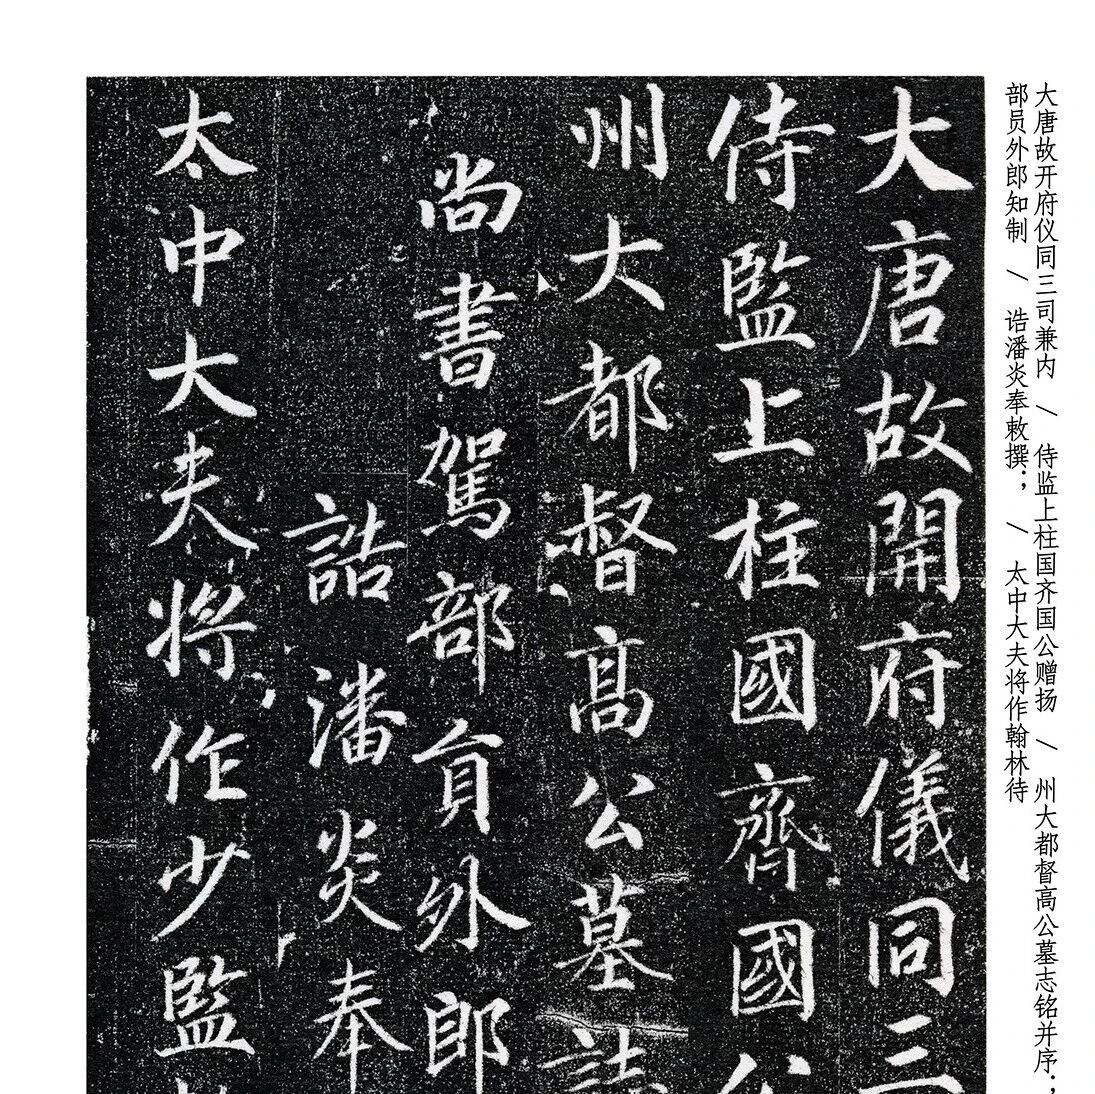 大唐故开府仪同三司兼内 / 侍监上柱国齐国公赠扬 / 州大都督高公墓志铭并序；
部员外郎知制 / 诰潘炎奉敕撰； / 太中大夫将作翰林待
大唐故開府儀同三
侍監上柱國齊國公
州大都督高公墓誌
尚書駕部員外郎
誥潘炎奉
太中大夫將作少監